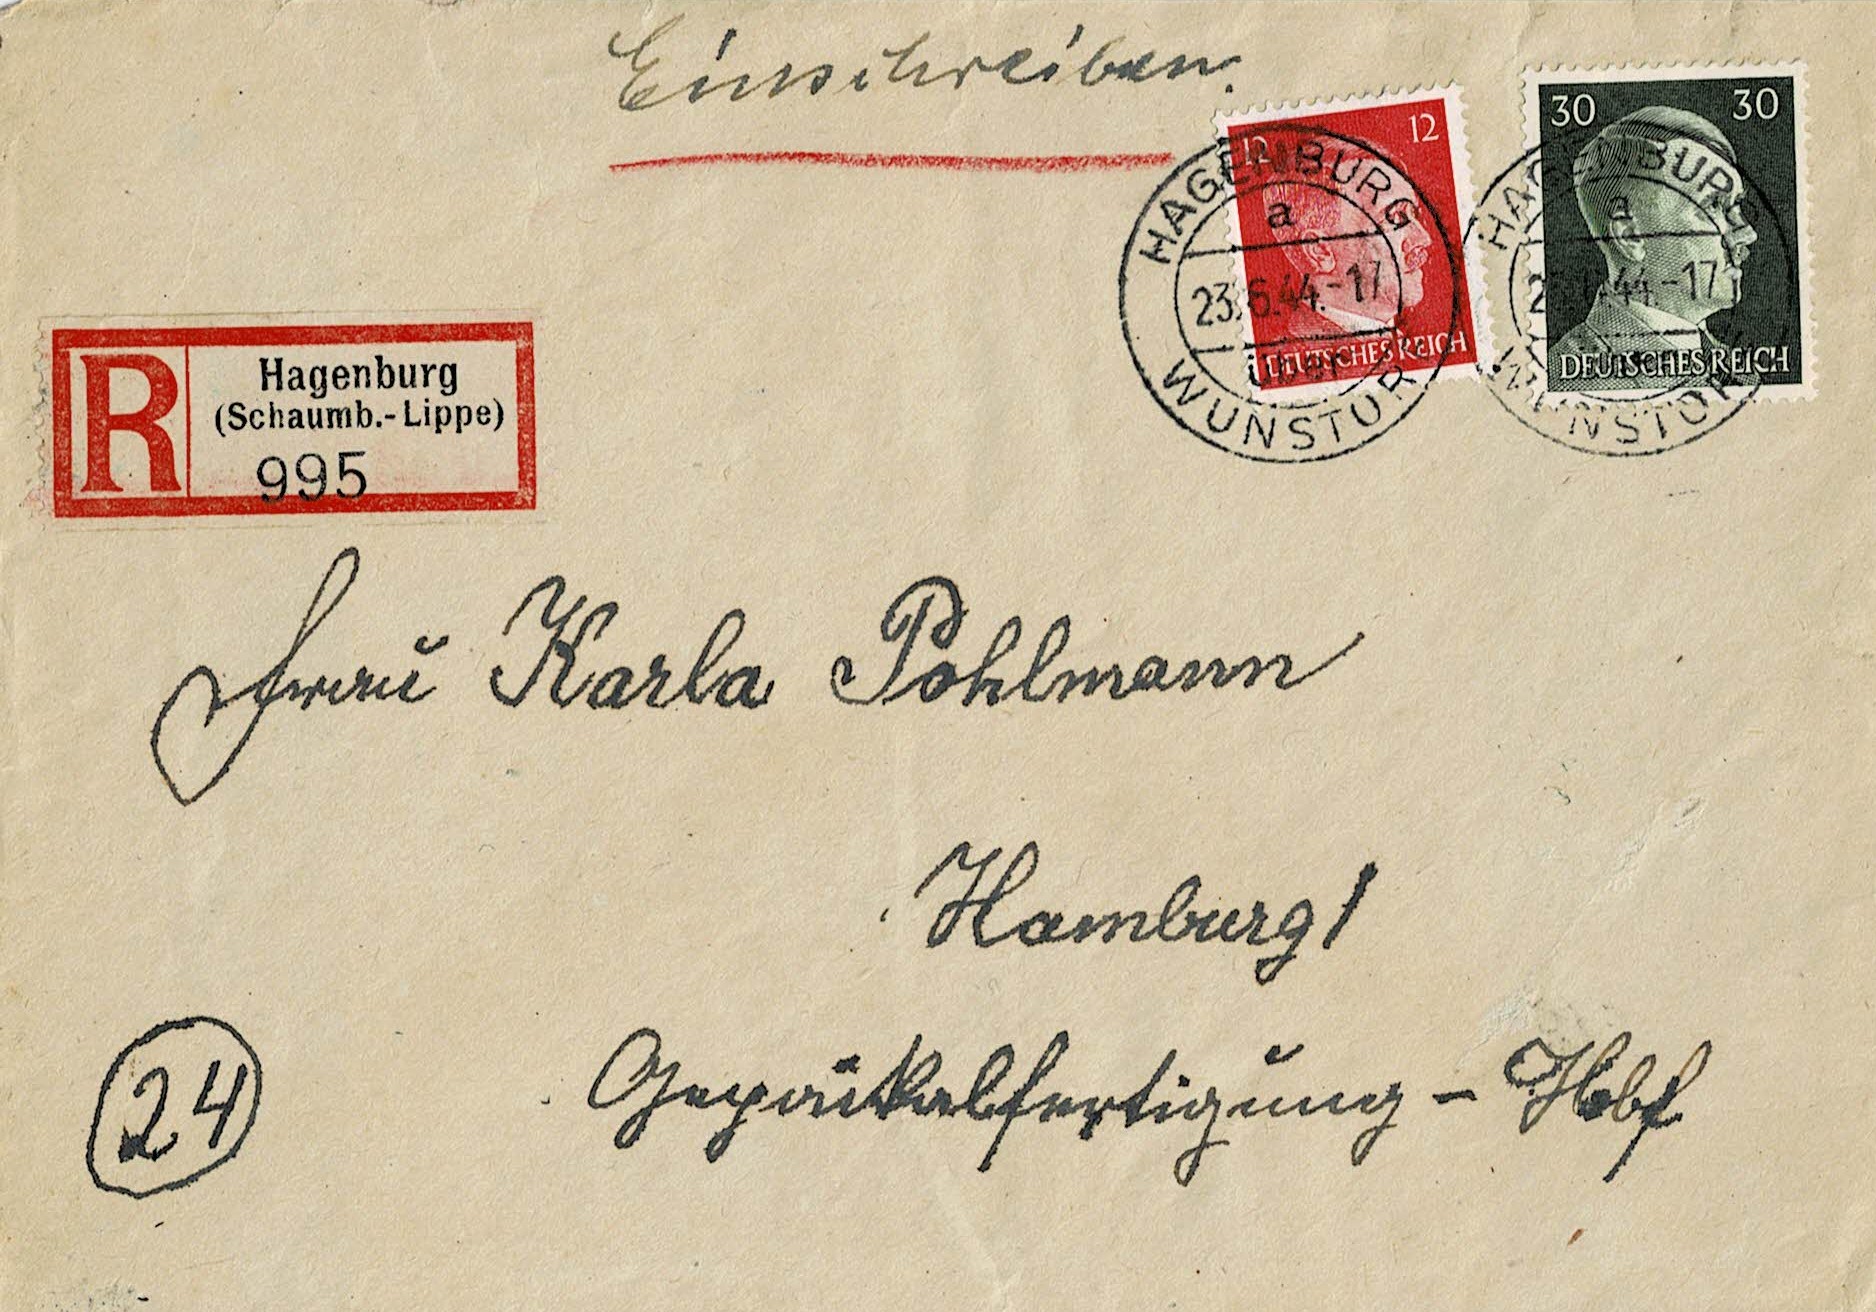 Einschreiben.
12 12
30 30
HAGENBURG
a
23.6.44.-17
über
WUNSTORF
DEUTSCHES REICH
HAGENBURG
a
44.-17
WUNSTORF
DEUTSCHES REICH
R
Hagenburg
(Schaumb.-Lippe)
995
Frau Karla Pohlmann
Hamburg 1
24
Gepäckabfertigung - Hbf